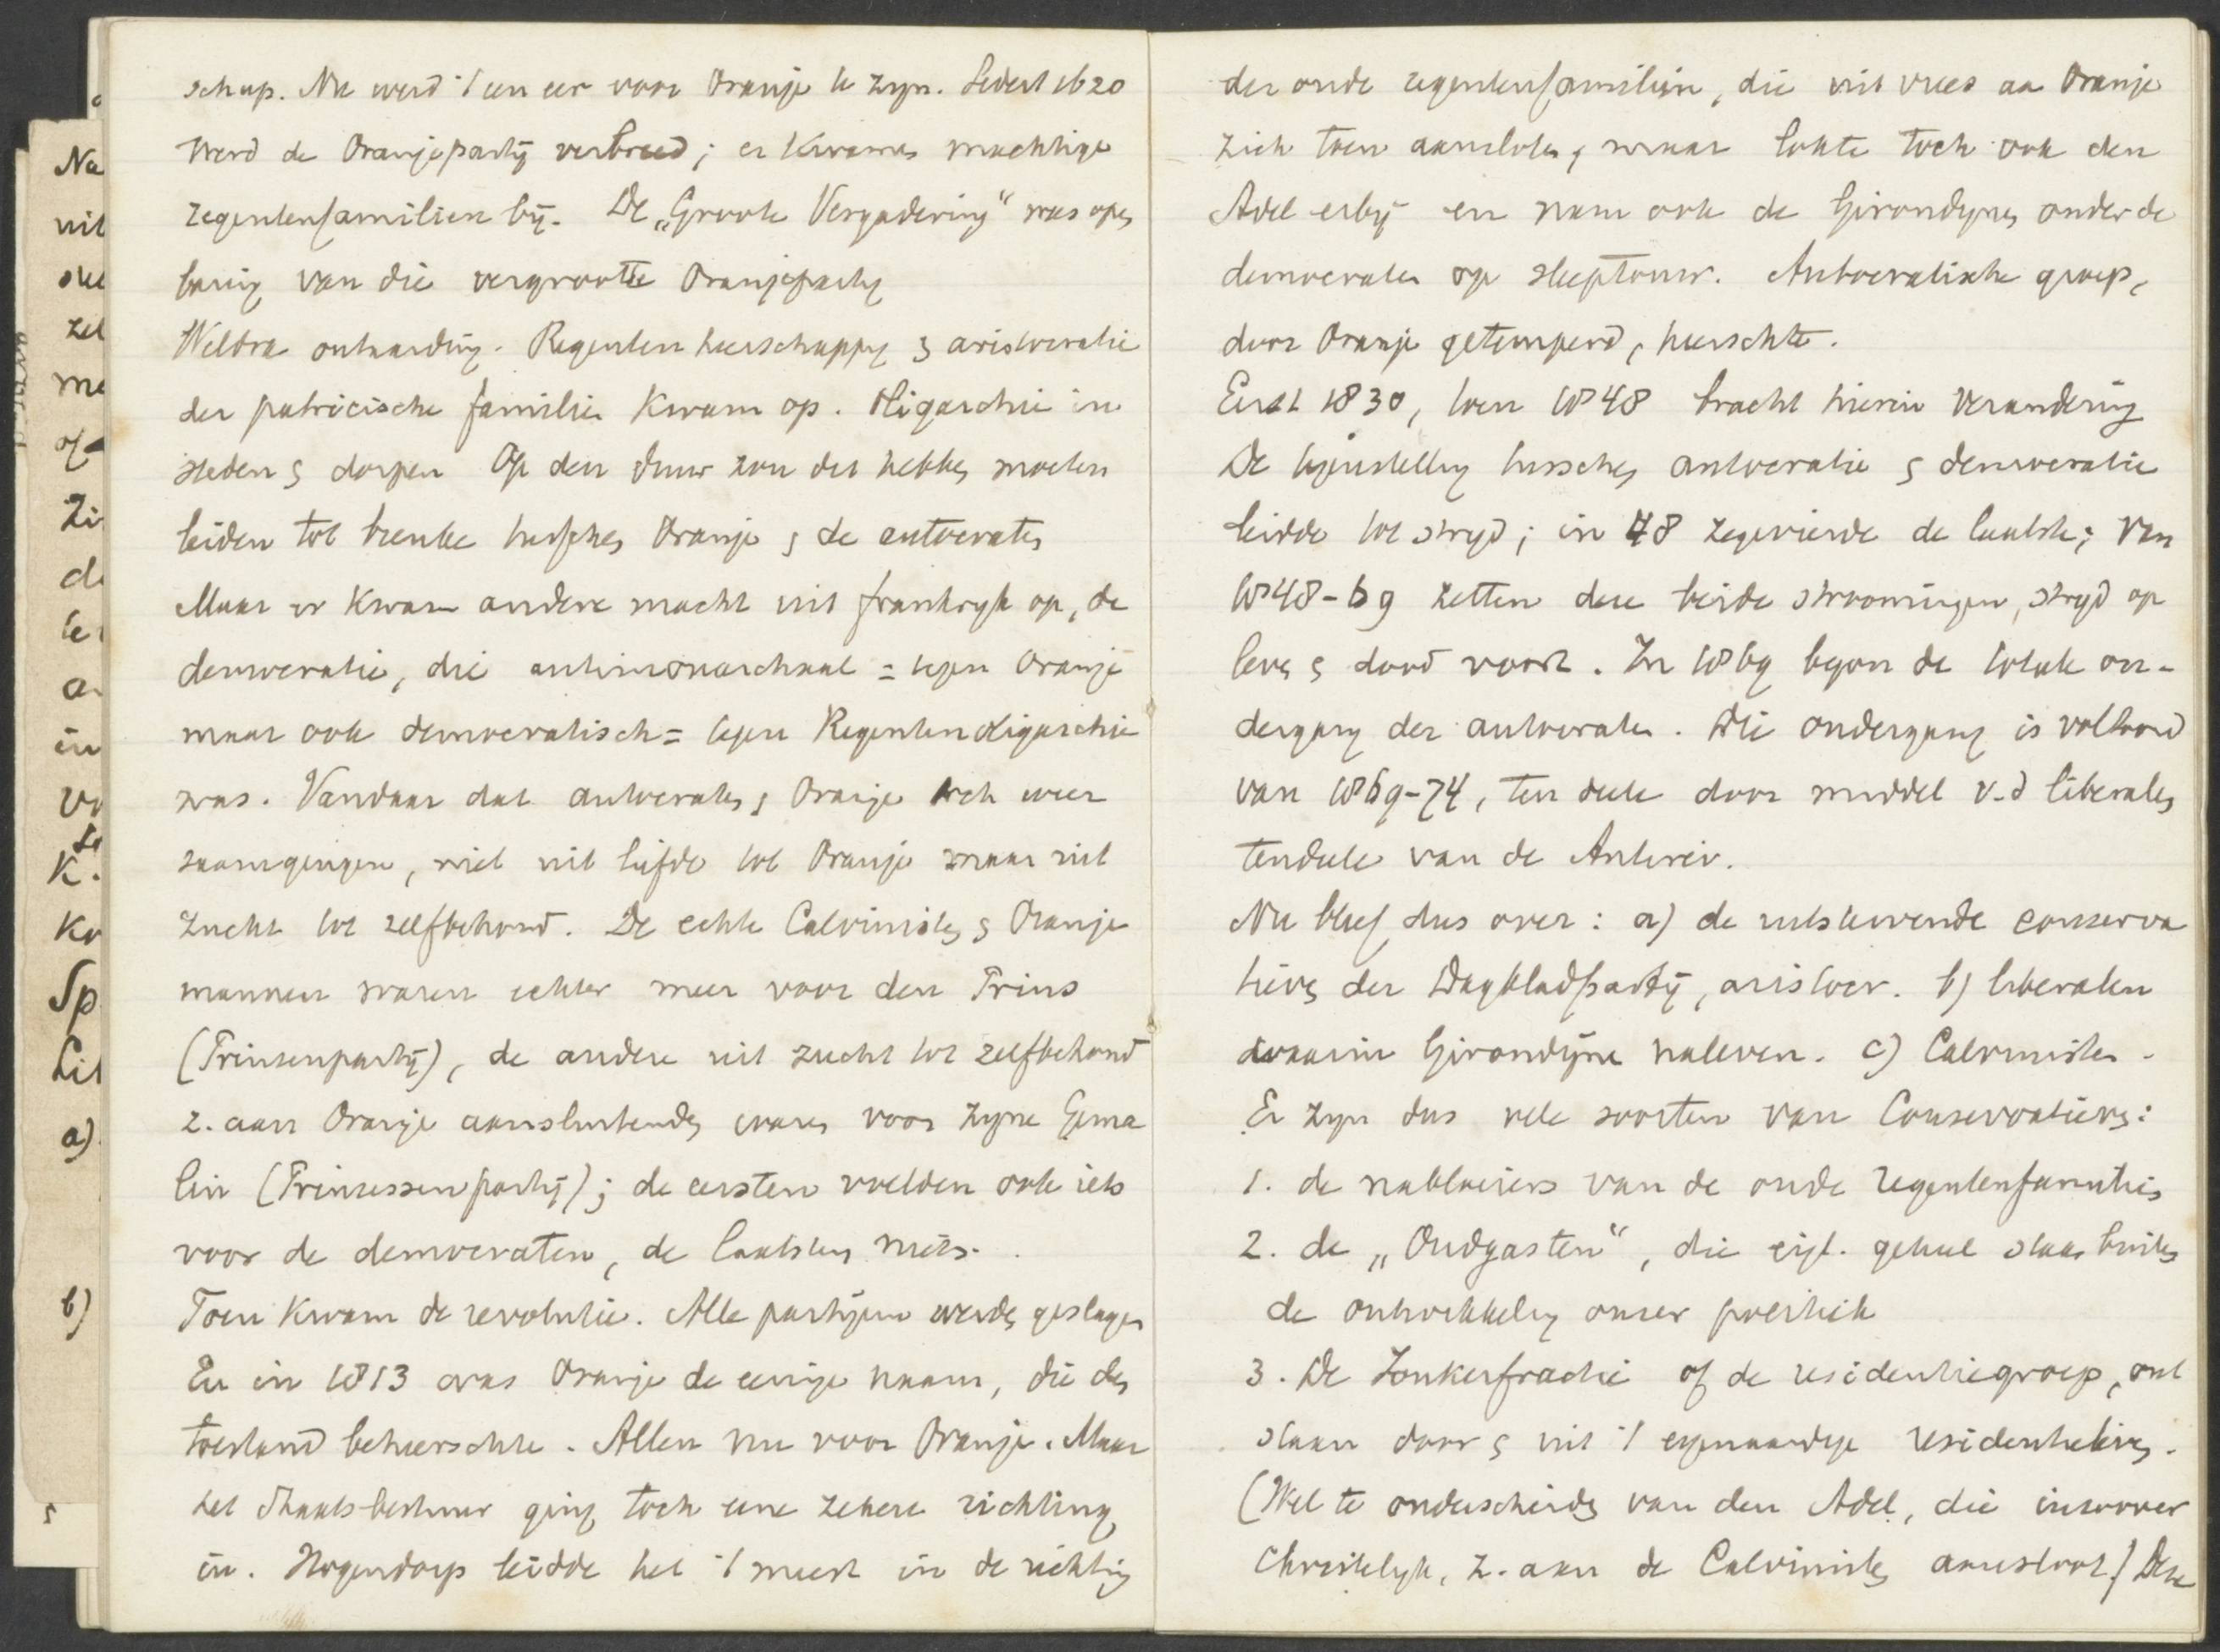 schap. Nu werd 't een eer voor Oranje te zyn. Sedert 1620
werd de Oranjepartij verbreed; er kwamen machtige
regentenfamilien bij. De „Groote Vergadering" was open
baring van die vergrootte Oranjeparty
Weldra ontaarding. Regenten heerschappy & aristocratie
der patricische familien kwam op. Oligarchie in
steden & dorpen Op den duur zou dit hebben moeten
leiden tot breuke tusschen Oranje & de autocraten
Maar er kwam andere macht uit frankryk op, de
democratie, die antimonarchaal = tegen Oranje
maar ook democratisch = tegen Regentenoligarchie
was. Vandaar dat autocraten & Oranje toch weer
saamgingen, niet uit liefde tot Oranje maar uit
zucht tot zelfbehoud. De echte Calvinisten & Oranje
mannen waren echter meer voor den Prins
(Prinsenpartij), de andere uit zucht tot zelfbehoud
z. aan Oranje aansluitenden waren voor zyne Gema
lin (Prinsessenpartij); de eersten voelden ook iets
voor de democraten, de laatsten niets.
Toen kwam de revolutie. Alle partijen werden geslagen
En in 1813 was Oranje de eenige naam, die den
toestand beheerschte. Allen nu voor Oranje. Maar
het Staats-bestuur ging toch eene zekere richting
in. Hogendorp leidde het 't meest in de richting
der oude regentenfamiliën, die uit vrees aan Oranje
zich toen aansloten, maar lokte toch ook den
Adel erbij en nam ook de Girondynen onder de
democraten op sleeptouw. Autocratische groep,
door Oranje getemperd, heerschte.
Eerst 1830, toen 1848 bracht hierin verandering
De tegenstelling tusschen autocratie & democratie
leidde tot stryd; in 48 zegevierde de laatste; Van
1848-69 zetten deze beide stroomingen, stryd op
leven & dood voort. In 1869 begon de totale on-
dergang der autocraten. Die ondergang is voltooid
van 1869-74, ten deele door middel v.d liberalen
tendeele van de Antirev.
Nu bleef dus over: a) de uitstervende conserva
tieven der Dagbladpartij, aristocr. b) liberalen
waarin Girondijne naleven. c) Calvinisten.
Er zyn dus vele soorten van Conservatieven:
1. de nabloeiers van de oude regentenfamilies
2. de „Oudgasten", die eigl. geheel staan buiten
de ontwikkeling onzer politiek
3. De Jonkerfractie of de residentiegroep, ont
staan door & uit 't eigenaardige residentieleven.
(Wel te onderscheiden van den Adel, die inzoover
Christelyk, z. aan de Calvinisten aansloot.) Deze